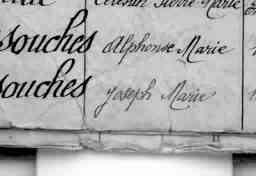 Célestin Pierre Marie
souches Alphonse Marie
souches Joseph Marie